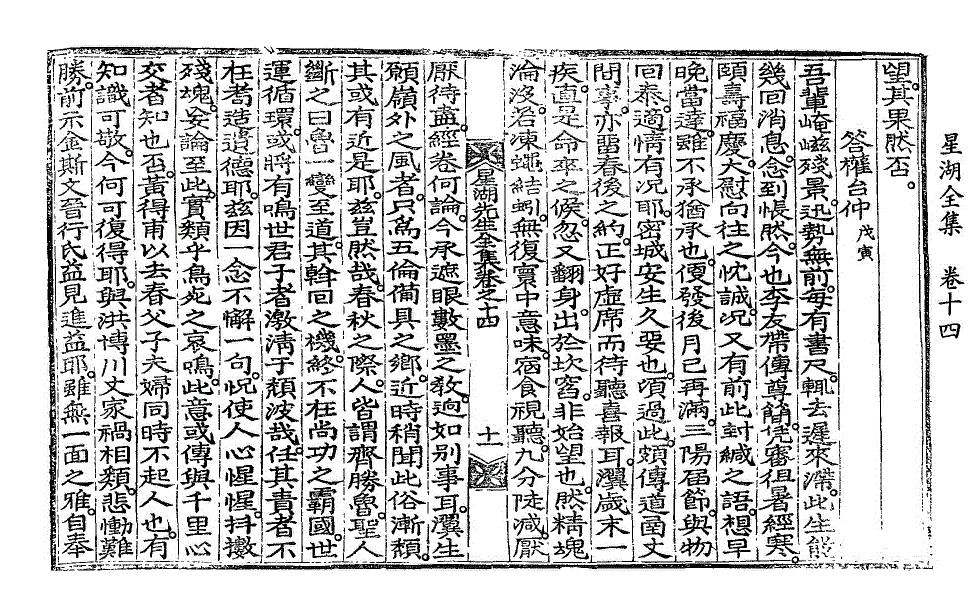 星湖全集　卷十四
望。其果然否。
答權台仲 戊寅
吾輩崦嵫殘景。迅勢無前。每有書尺。輒去遲來濶。此生能
幾回消息。念到悵然。今也李友帶傳尊簡。凭審徂暑經寒。
頤壽福慶。大慰向往之忱誠。况又有前此封緘之語。想早
晩當達。雖不承猶承也。便發後月已再滿。三陽屆節。與物
回泰。過情有况耶。密城安生久要也。頃過此。頗傳道啚丈
問辜。亦留春後之約。正好虛席而待聽喜報耳。瀷歲末一
疾。直是命卒之候。忽又翻身。出於坎窞。非始望也。然精塊
淪洛。沍凍蠅結蚓。無復寰中意味。宿食視聽。九分陡减。厭
星湖先生全集卷之十四
十一
厭待盡。經卷何論。今承遮眼數墨之敎。逈如别事耳。瀷生
願嶺外之風者。只爲五倫備具之鄕。近時稍聞此俗漸頹。
其或有近是耶。玆豈然哉。春秋之際。人皆謂齊勝魯。聖人
斷之曰魯一變至道。其斡回之機。終不在尙功之霸國。世
運循環。或將有鳴世君子者激淸于頹波哉。任其責者不
在耇造遺德耶。玆因一念不懈一句。怳使人心惺惺。抖擻
殘塊。妄論至此。實類乎鳥死之哀鳴。此意或傳與千里心
交者知也否。黃得甫以去春父子夫婦同時不起人也。有
知識可敬。今何可復得耶。與洪博川文家禍相類。悲慟難
勝。前示金斯文晉行氏益見進益耶。雖無一面之雅。自奉